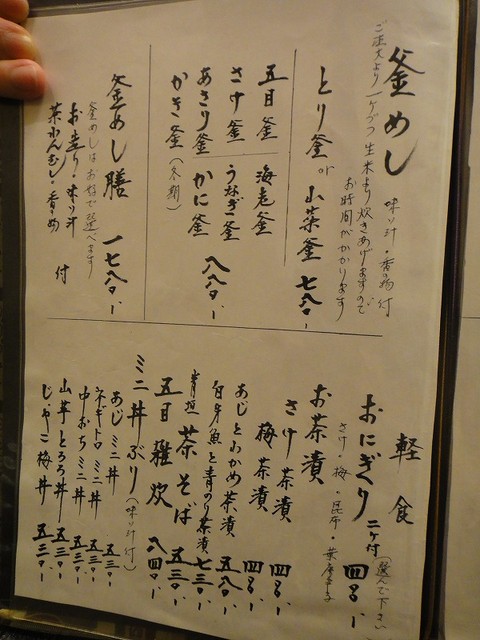 釜めし 味ソ汁・香の物 付
ご注文より一ケづつ生米より炊きあげますので
お時間がかかります
とり釜 or 山菜釜 七八〇、
五目釜 海老釜
さけ釜 うなぎ釜
あさり釜 かに釜 八八〇、
かき釜(冬期)
釜めし膳 一七八〇、
釜めしはお好で選べます
お造り・味ソ汁
茶わんむし・香の物 付
軽食
おにぎり 二ケ付(選んで下さい) 四五〇、
さけ・梅・昆布・葉唐辛子
お茶漬
さけ茶漬 四五〇、
梅茶漬 四五〇、
あじとわかめ茶漬 五八〇、
白身魚と青のり茶漬 七三〇、
茶そば 五三〇、
五目雑炊 八四〇、
ミニ丼ぶり(味ソ汁付)
あじミニ丼 五三〇、
ネギトロミニ丼 五三〇、
中おちミニ丼 五三〇、
山芋とろろ丼 五三〇、
じゃこ梅丼 五三〇、